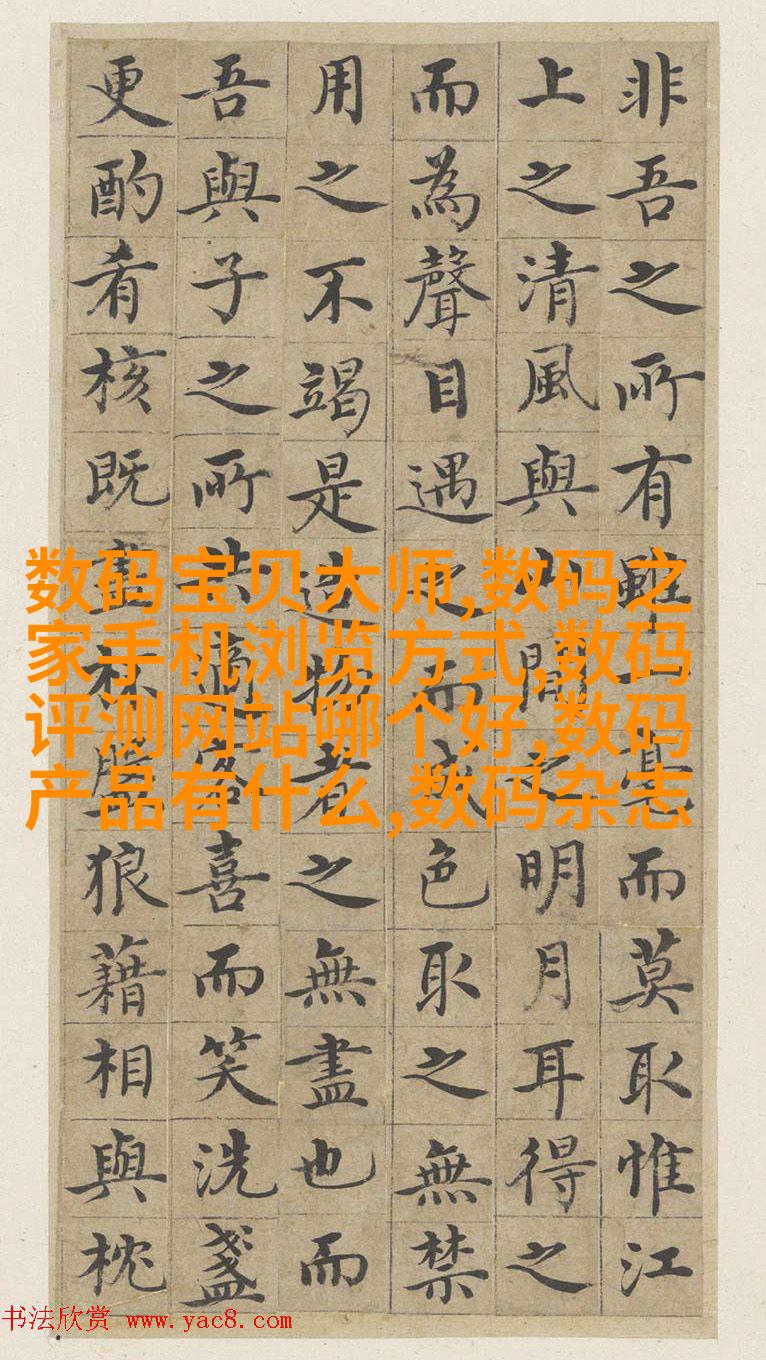 非吾之所有雖一毫而莫取惟江
上之清風與山間之明月耳得之
而為聲目遇之而成色取之無禁
用之不竭是造物者之無盡也而
吾與子之所共適客喜而笑洗盞
更酌肴核既盡杯盤狼藉相與枕
数码宝贝大师,数码之
家手机浏览方式,数码
评测网站哪个好,数码
产品有什么,数码杂志
书法欣赏 www.yac8.com